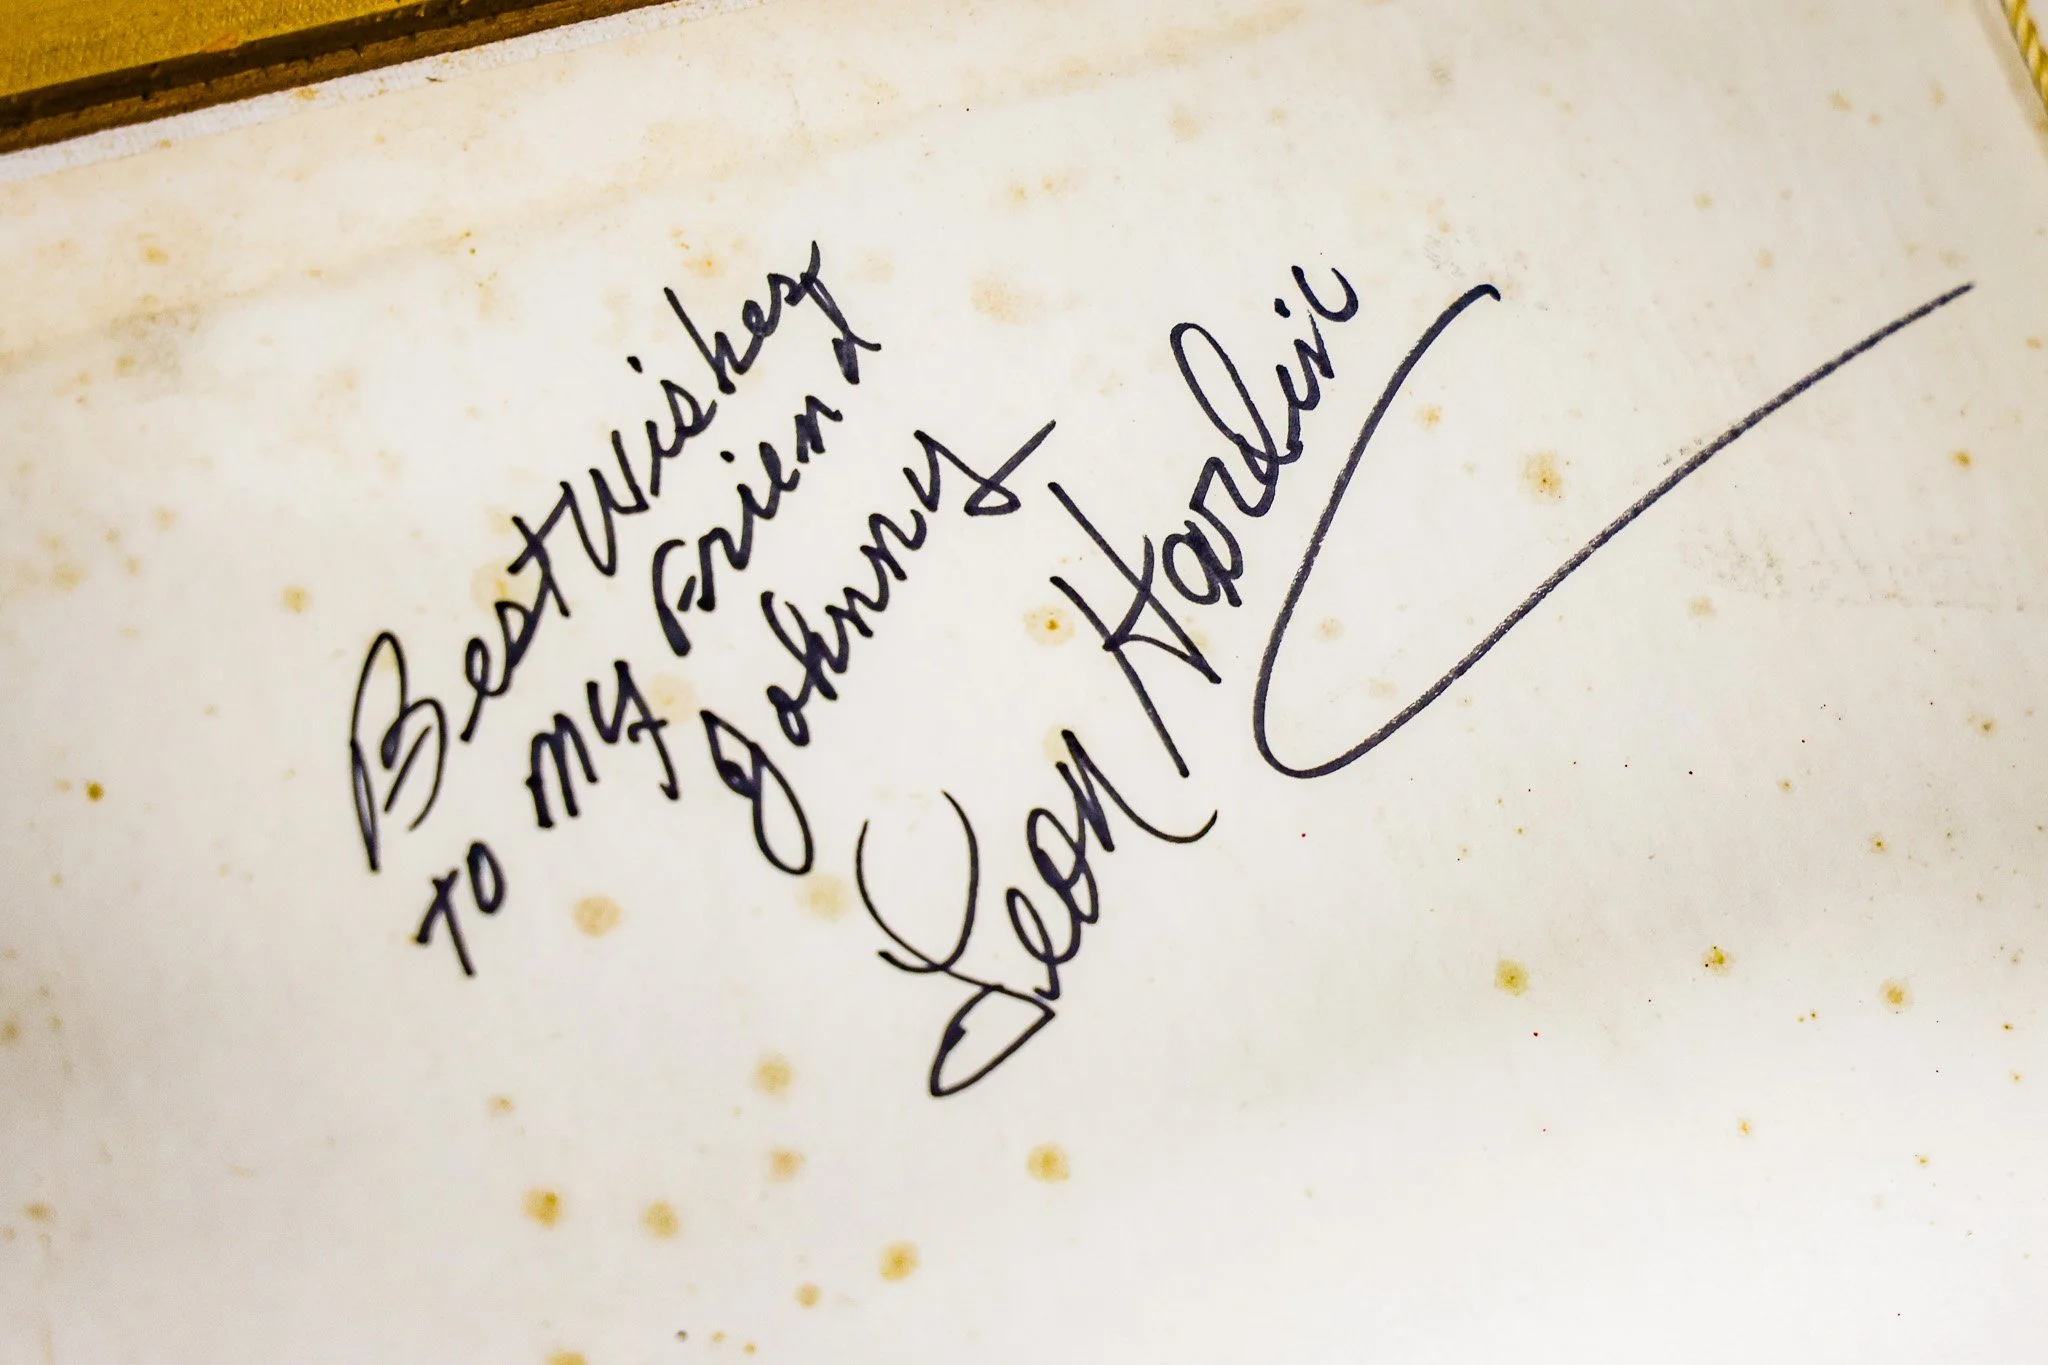 Best Wishes
to my Friend
Johnny
Leon Hardin